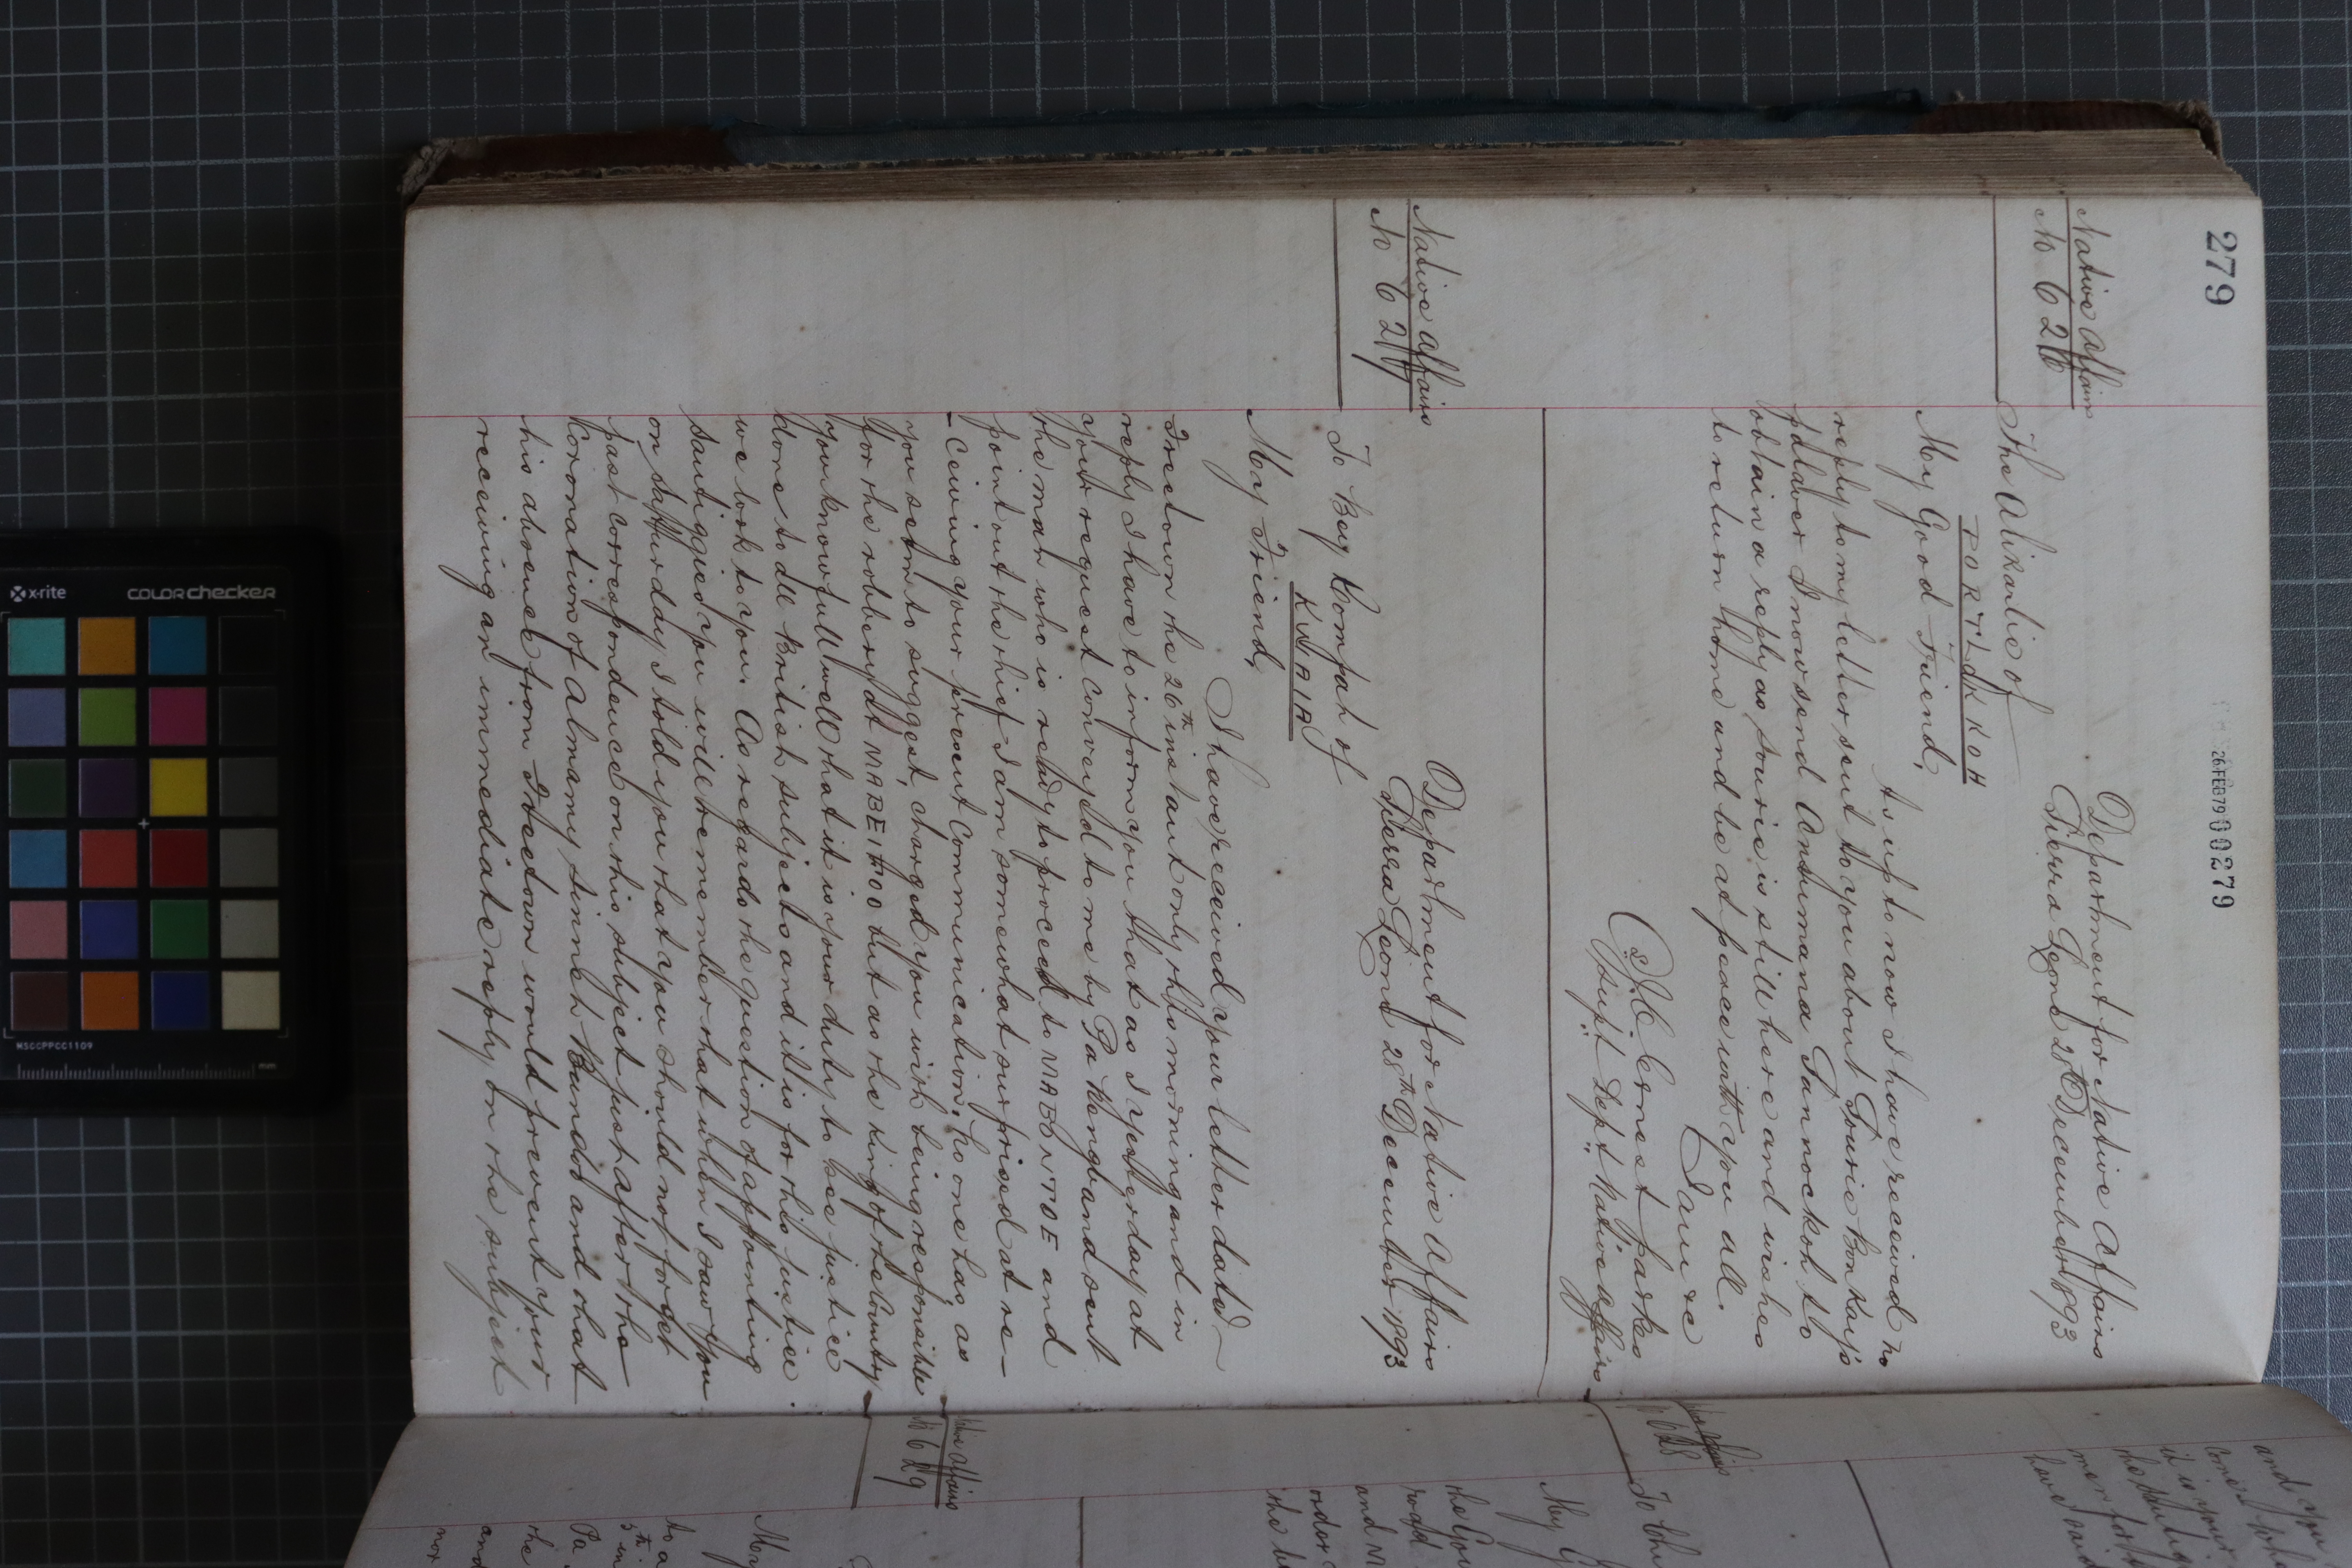 279
26FEB79 000279
Native Affairs
No 626
Department for Native Affairs
Sierra Leone 28th December 1893
The Alikarlie of
PORT LOKKOH
My Good Friend,
to up to now I have received no
reply to my letter sent to you about Sourie Bonkay's
palaver I now send Ansumana Sannockoh to
obtain a reply as Sourie is still here and wishes
to return home and be at peace with you all.
I am &c
(s) J. C. Ernest Parkes
Supt Dept Native Affairs
Native Affairs
No 627
Department for Native Affairs
Sierra Leone 28th December 1893
To Bey Kompah of
My Friend,
I have received your letter dated
Freetown the 26th instant only this morning and in
reply I have to inform you that as I yesterday at
your request conveyed to me by Pa and sent
the man who is ready to proceed to and
point out the thief I am somewhat surprised at re-
-ceiving your present communication. No one has, as
you seem to suggest, charged you with being responsible
for the robbery at but as the king of the country
you know full well that it is your duty to see justice
done to all British subjects and it is for this justice
we look to you. As regards the question of appointing
Santiggies you will remember that when I saw you
on yesterday I told you that you should not forget
past correspondence on this subject just after the
Coronation of Almamy Sinneh Bundoo and that
his absence from Freetown would prevent your
receiving an immediate reply on the subject
and you
it is your
have said
Native Affairs
No 628
My G
and
order
Native Affairs
No 629
My
to a
5th in
Pa
the
and
nor